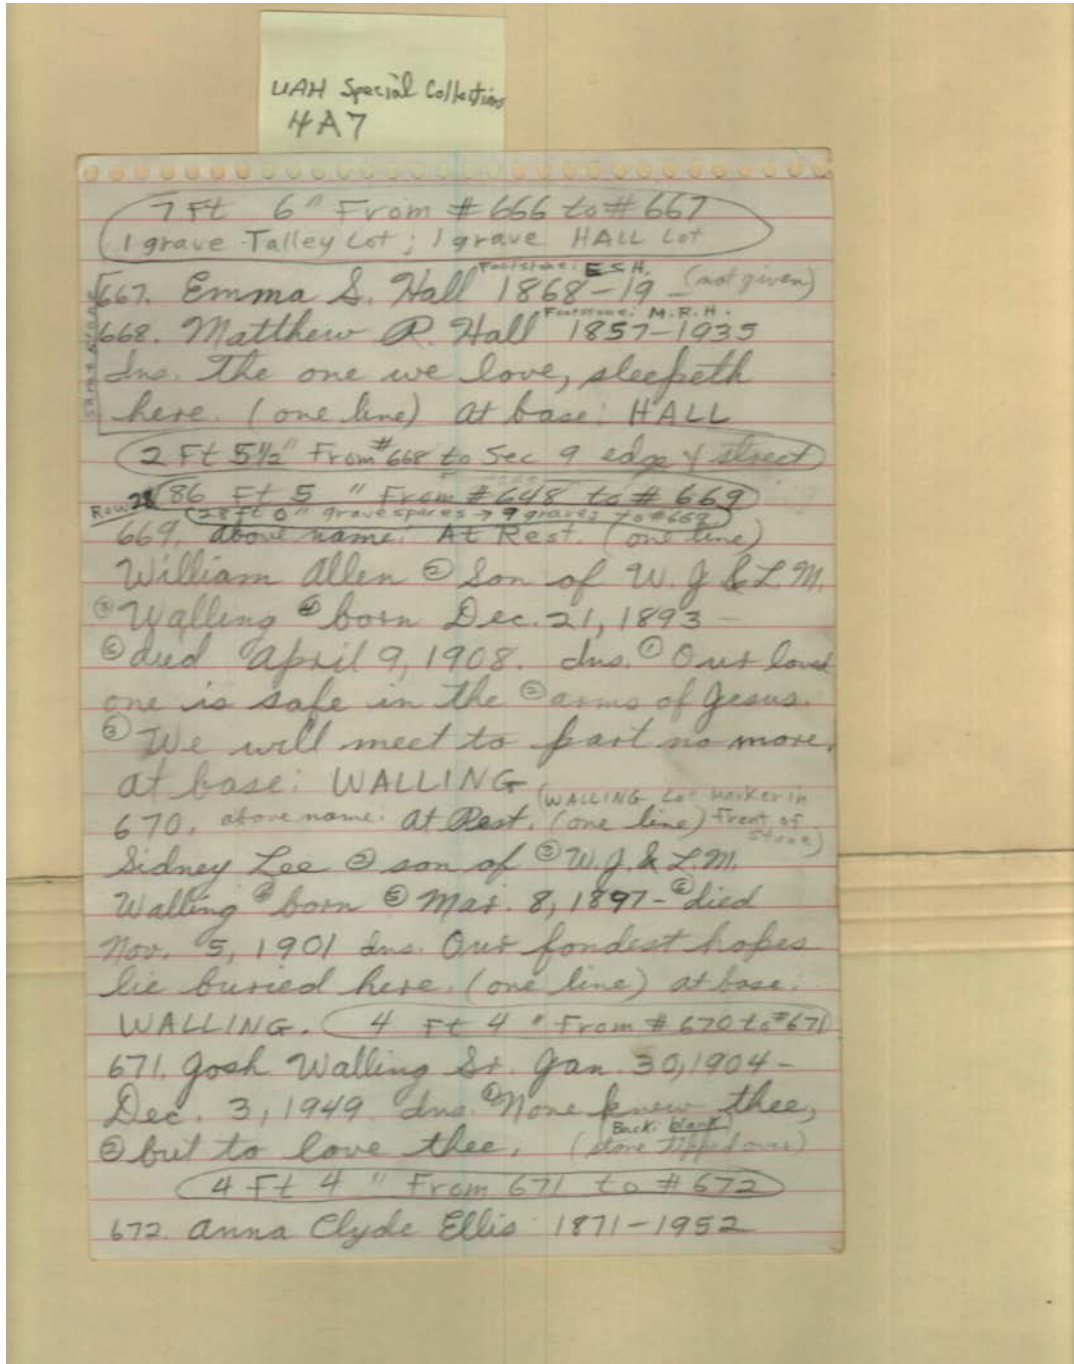 UAH Special Collections
4A7
7 Ft 6" From #666 to #667
1 grave Talley Lot; 1 grave HALL Lot
Footstone: E.S.H.
667. Emma S. Hall 1868-19 - (not given)
Footstone: M.R.H.
668. Matthew R. Hall 1857-1935
Ins. The one we love, sleepeth
here. (one line) at base: HALL
same stone
2 Ft 5½" From #668 to Sec 9 edge of street
86 Ft 5 " From #648 to #669
Row 28 (28 ft 0" grave spaces → 9 graves to #669)
669. above name: At Rest. (one line)
William Allen ② Son of W. J. & L. M.
③ Walling ④ born Dec. 21, 1893 -
⑥ died April 9, 1908. Ins. ① Our loved
one is safe in the ② arms of Jesus.
③ We will meet to part no more.
at base: WALLING
(WALLING Lot marker in
front of
stone)
670. above name: At Rest. (one line)
Sidney Lee ② son of ③ W. J. & L. M.
Walling ④ born ⑤ Mar. 8, 1897- ⑥ died
Nov. 5, 1901 Ins. Our fondest hopes
lie buried here. (one line) at base:
WALLING. 4 Ft 4 " From #670 to #671
671. Josh Walling Sr. Jan. 30, 1904 -
Dec. 3, 1949 Ins. ① None knew thee,
② but to love thee. Back: blank
(stone tipped over)
4 Ft 4 " From 671 to #672
672. Anna Clyde Ellis 1871-1952